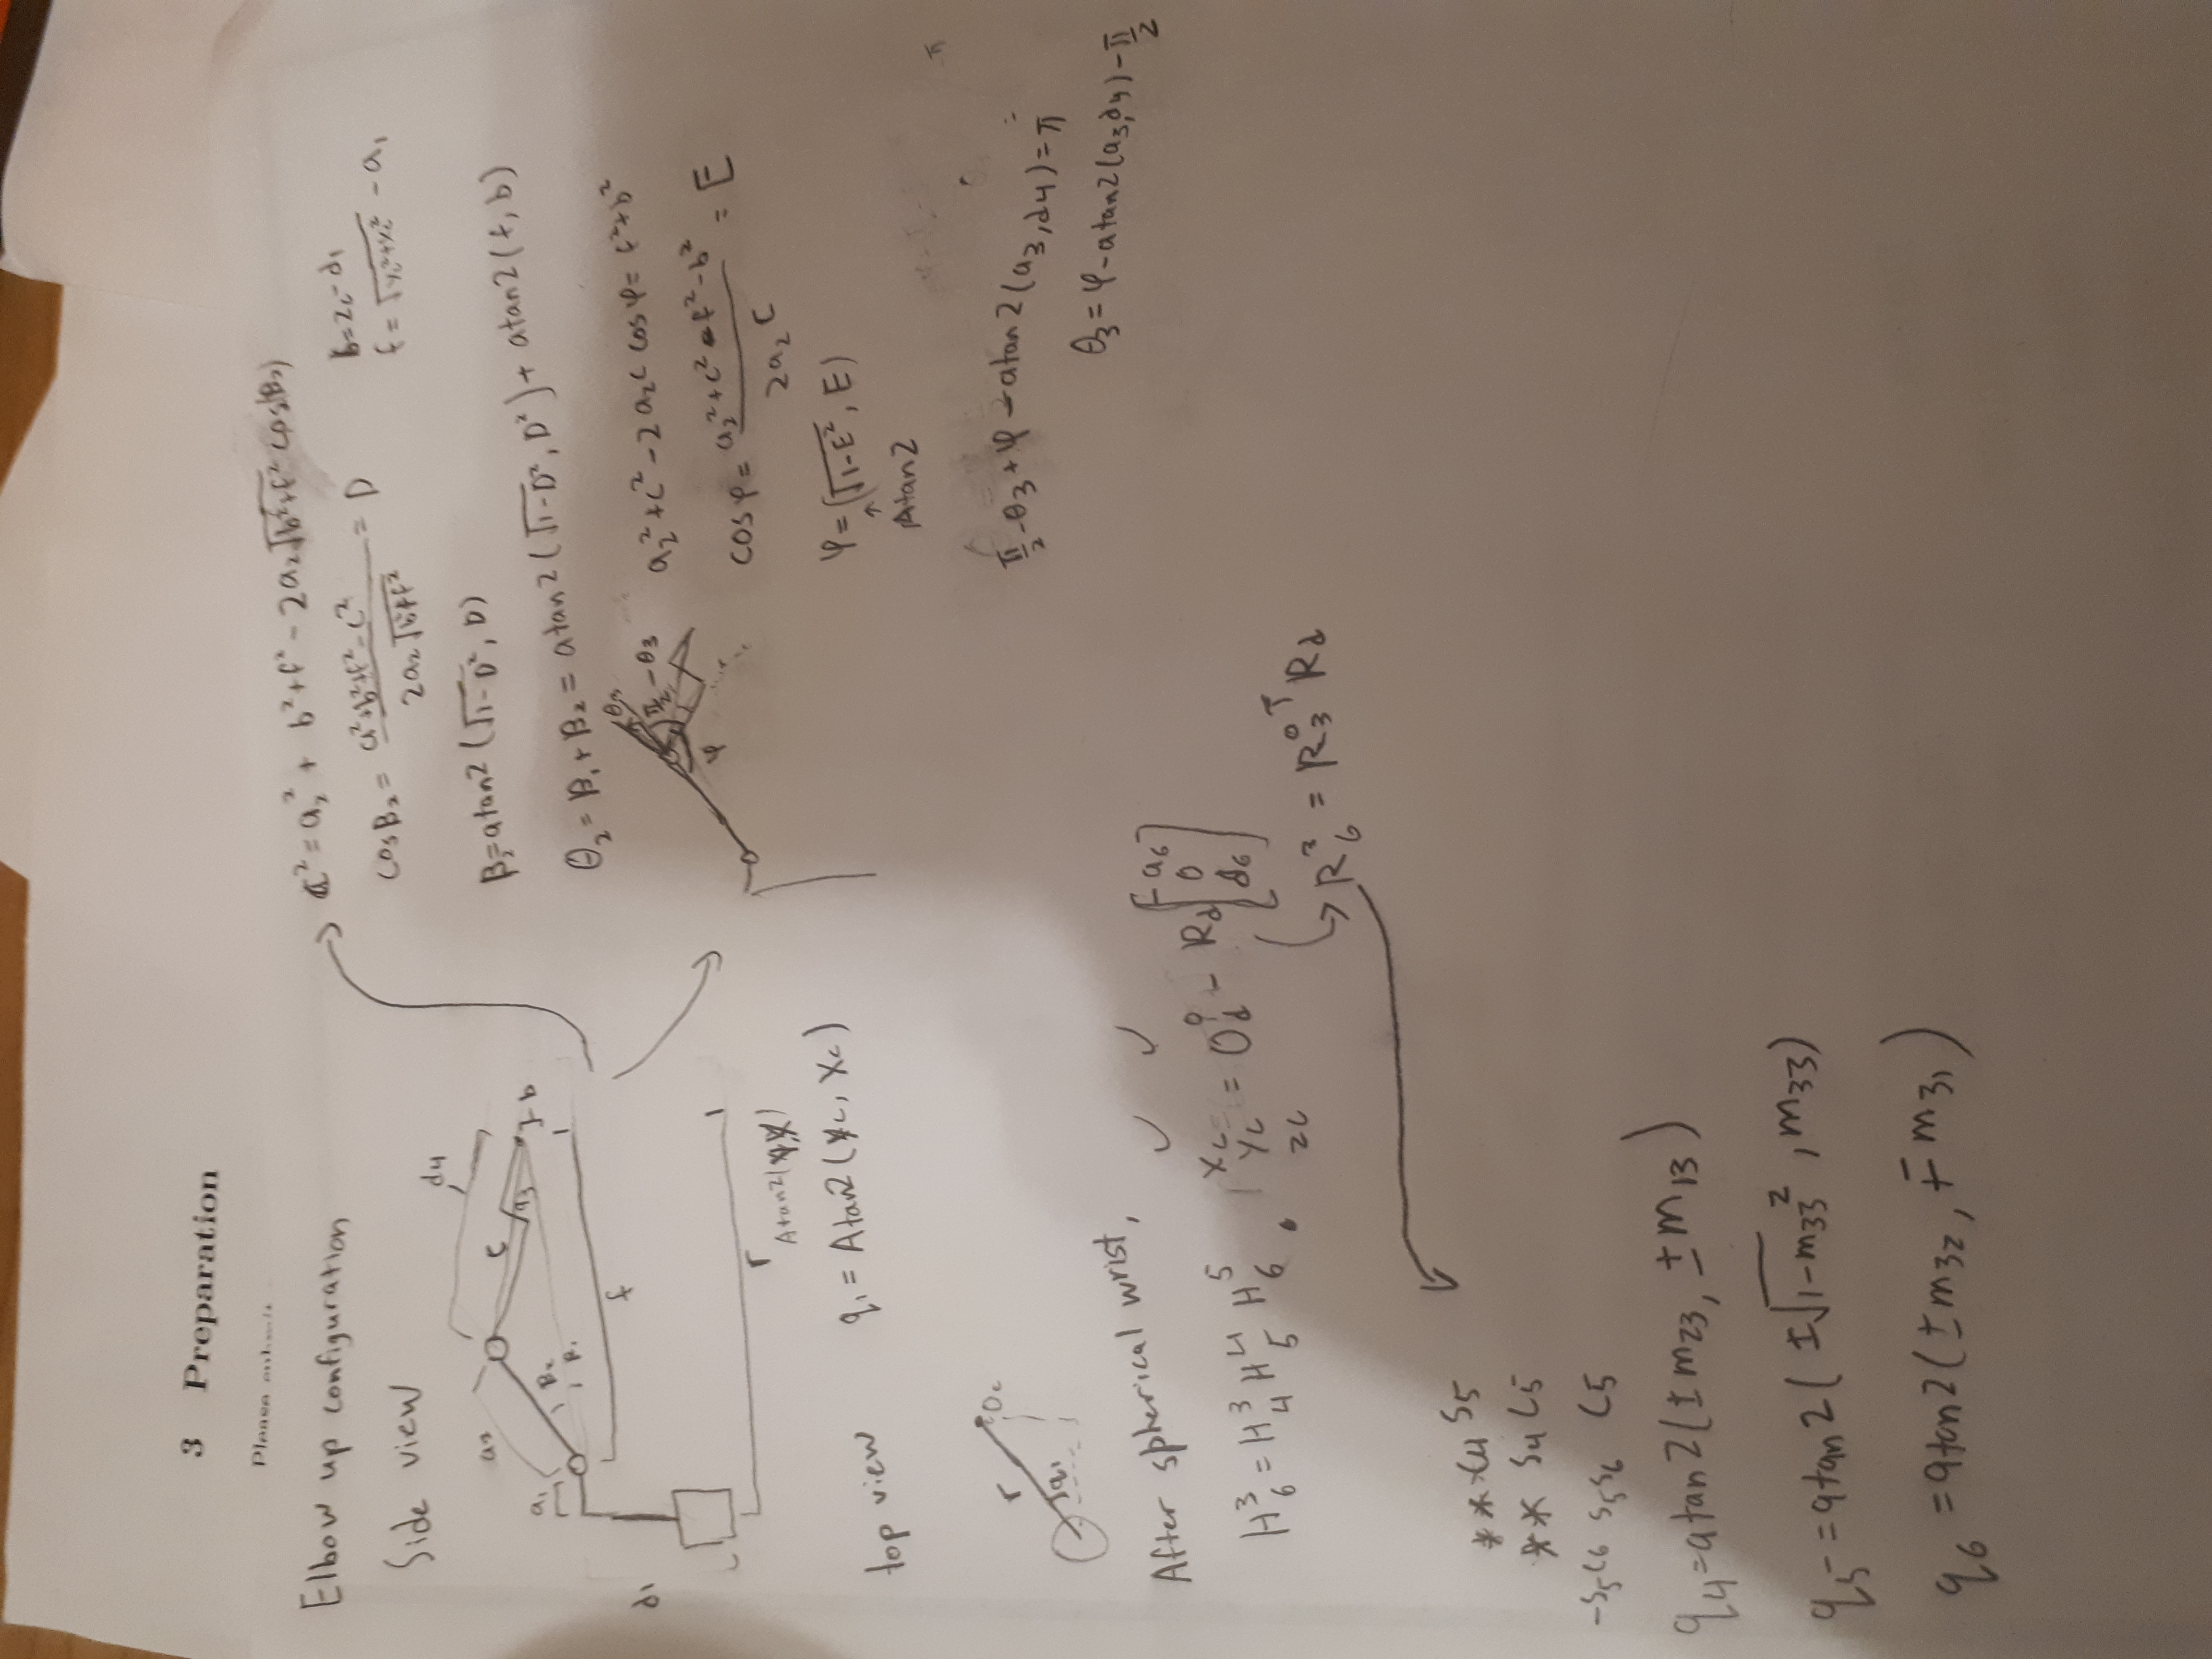 3 Preparation
Please submit
Elbow up configuration
Side view
d4
a2
c
a3
b
a1
β2
β1
f
d1
r
Atan2(
q1 = Atan2(yc, xc)
top view
r
Oc
q1
c² = a2² + b²+f² - 2a2√b²+f² cos(β2)
cosβ2 = a²+b²+f²-c² / 2a2√b²+f² = D
b = zc-d1
f = √yc²+xc² - a1
β2 = atan2(√1-D², D)
θ2 = β1 + β2 = atan2(√1-D², D²) + atan2(f, b)
θ3
π/2 - θ3
φ
a2² + c² - 2a2c cosφ = f²+b²
cosφ = a2²+c²-f²-b² / 2a2c = E
φ = (√1-E², E)
↑
Atan2
π
π/2 - θ3 + φ - atan2(a3, d4) = π
θ3 = φ - atan2(a3, d4) - π/2
After spherical wrist,
✓ ✓
H³6 = H³4 H⁴5 H⁵6
xc
yc
zc
= O⁰d - Rd [-a6 0 d6]
→ R³6 = R⁰3ᵀ Rd
* * c4 s5
* * s4 c5
-s5c6 s5s6 c5
q4 = atan2(±m23, ±m13)
q5 = atan2(±√1-m33², m33)
q6 = atan2(±m32, ∓m31)